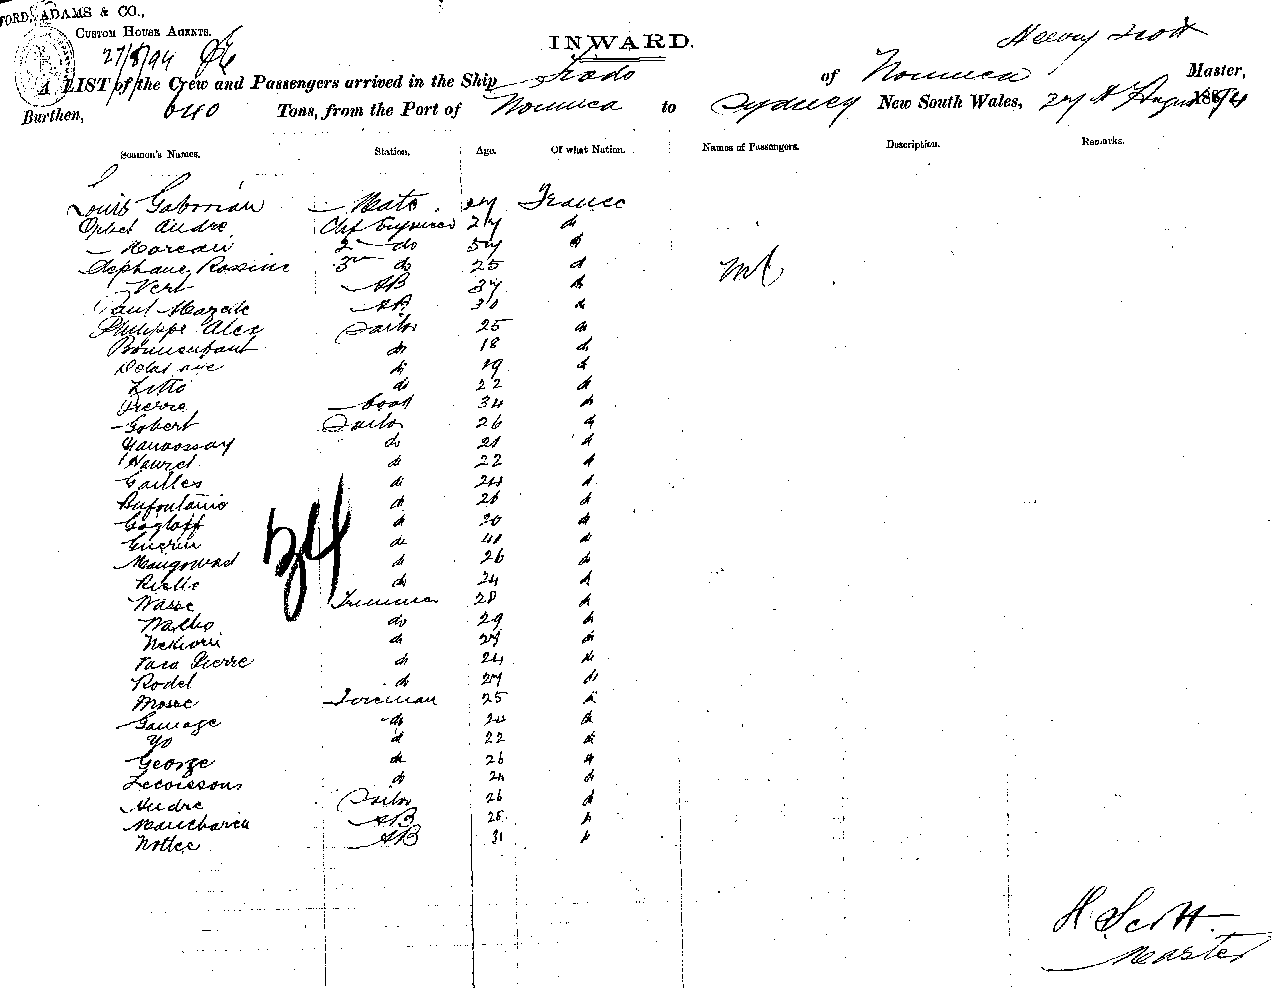 FORD, ADAMS & CO.,
CUSTOM HOUSE AGENTS.
27/8/94
INWARD.
Henry Scott
A LIST of the Crew and Passengers arrived in the Ship of Noumea Master,
Burthen, 640 Tons, from the Port of Noumea to Sydney New South Wales, 27th August 1894
Seamen's Names. Station. Age. Of what Nation. Names of Passengers. Description. Remarks.
Louis Mate 27 France
André Chf Engineer 27 do
Moreau 2nd do 57 do
Stephane Rossini 3rd do 25 do
Nil
Vert AB 37 do
Paul AB 30 do
Philippe Alex Sailor 25 do
Bonnenfant do 18 do
do 19 do
Litto do 22 do
Pierre Cook 34 do
Gobert Sailor 26 do
do 21 do
do 22 do
Gailles do 24 do
Dufontanio do 26 do
Gogloff do 20 do
Guerin do 41 do
do 26 do
Rielle do 24 do
Wasse Trimmer 28 do
Walho do 29 do
do 27 do
Tara Pierre do 24 do
Rodel do 27 do
Mosse Foreman 25 do
Gamage do 24 do
Yo do 22 do
George do 26 do
Lecoissons do 24 do
Andre Sailor 26 do
AB 25 do
Nottee AB 31 do
34
H Scott
Master